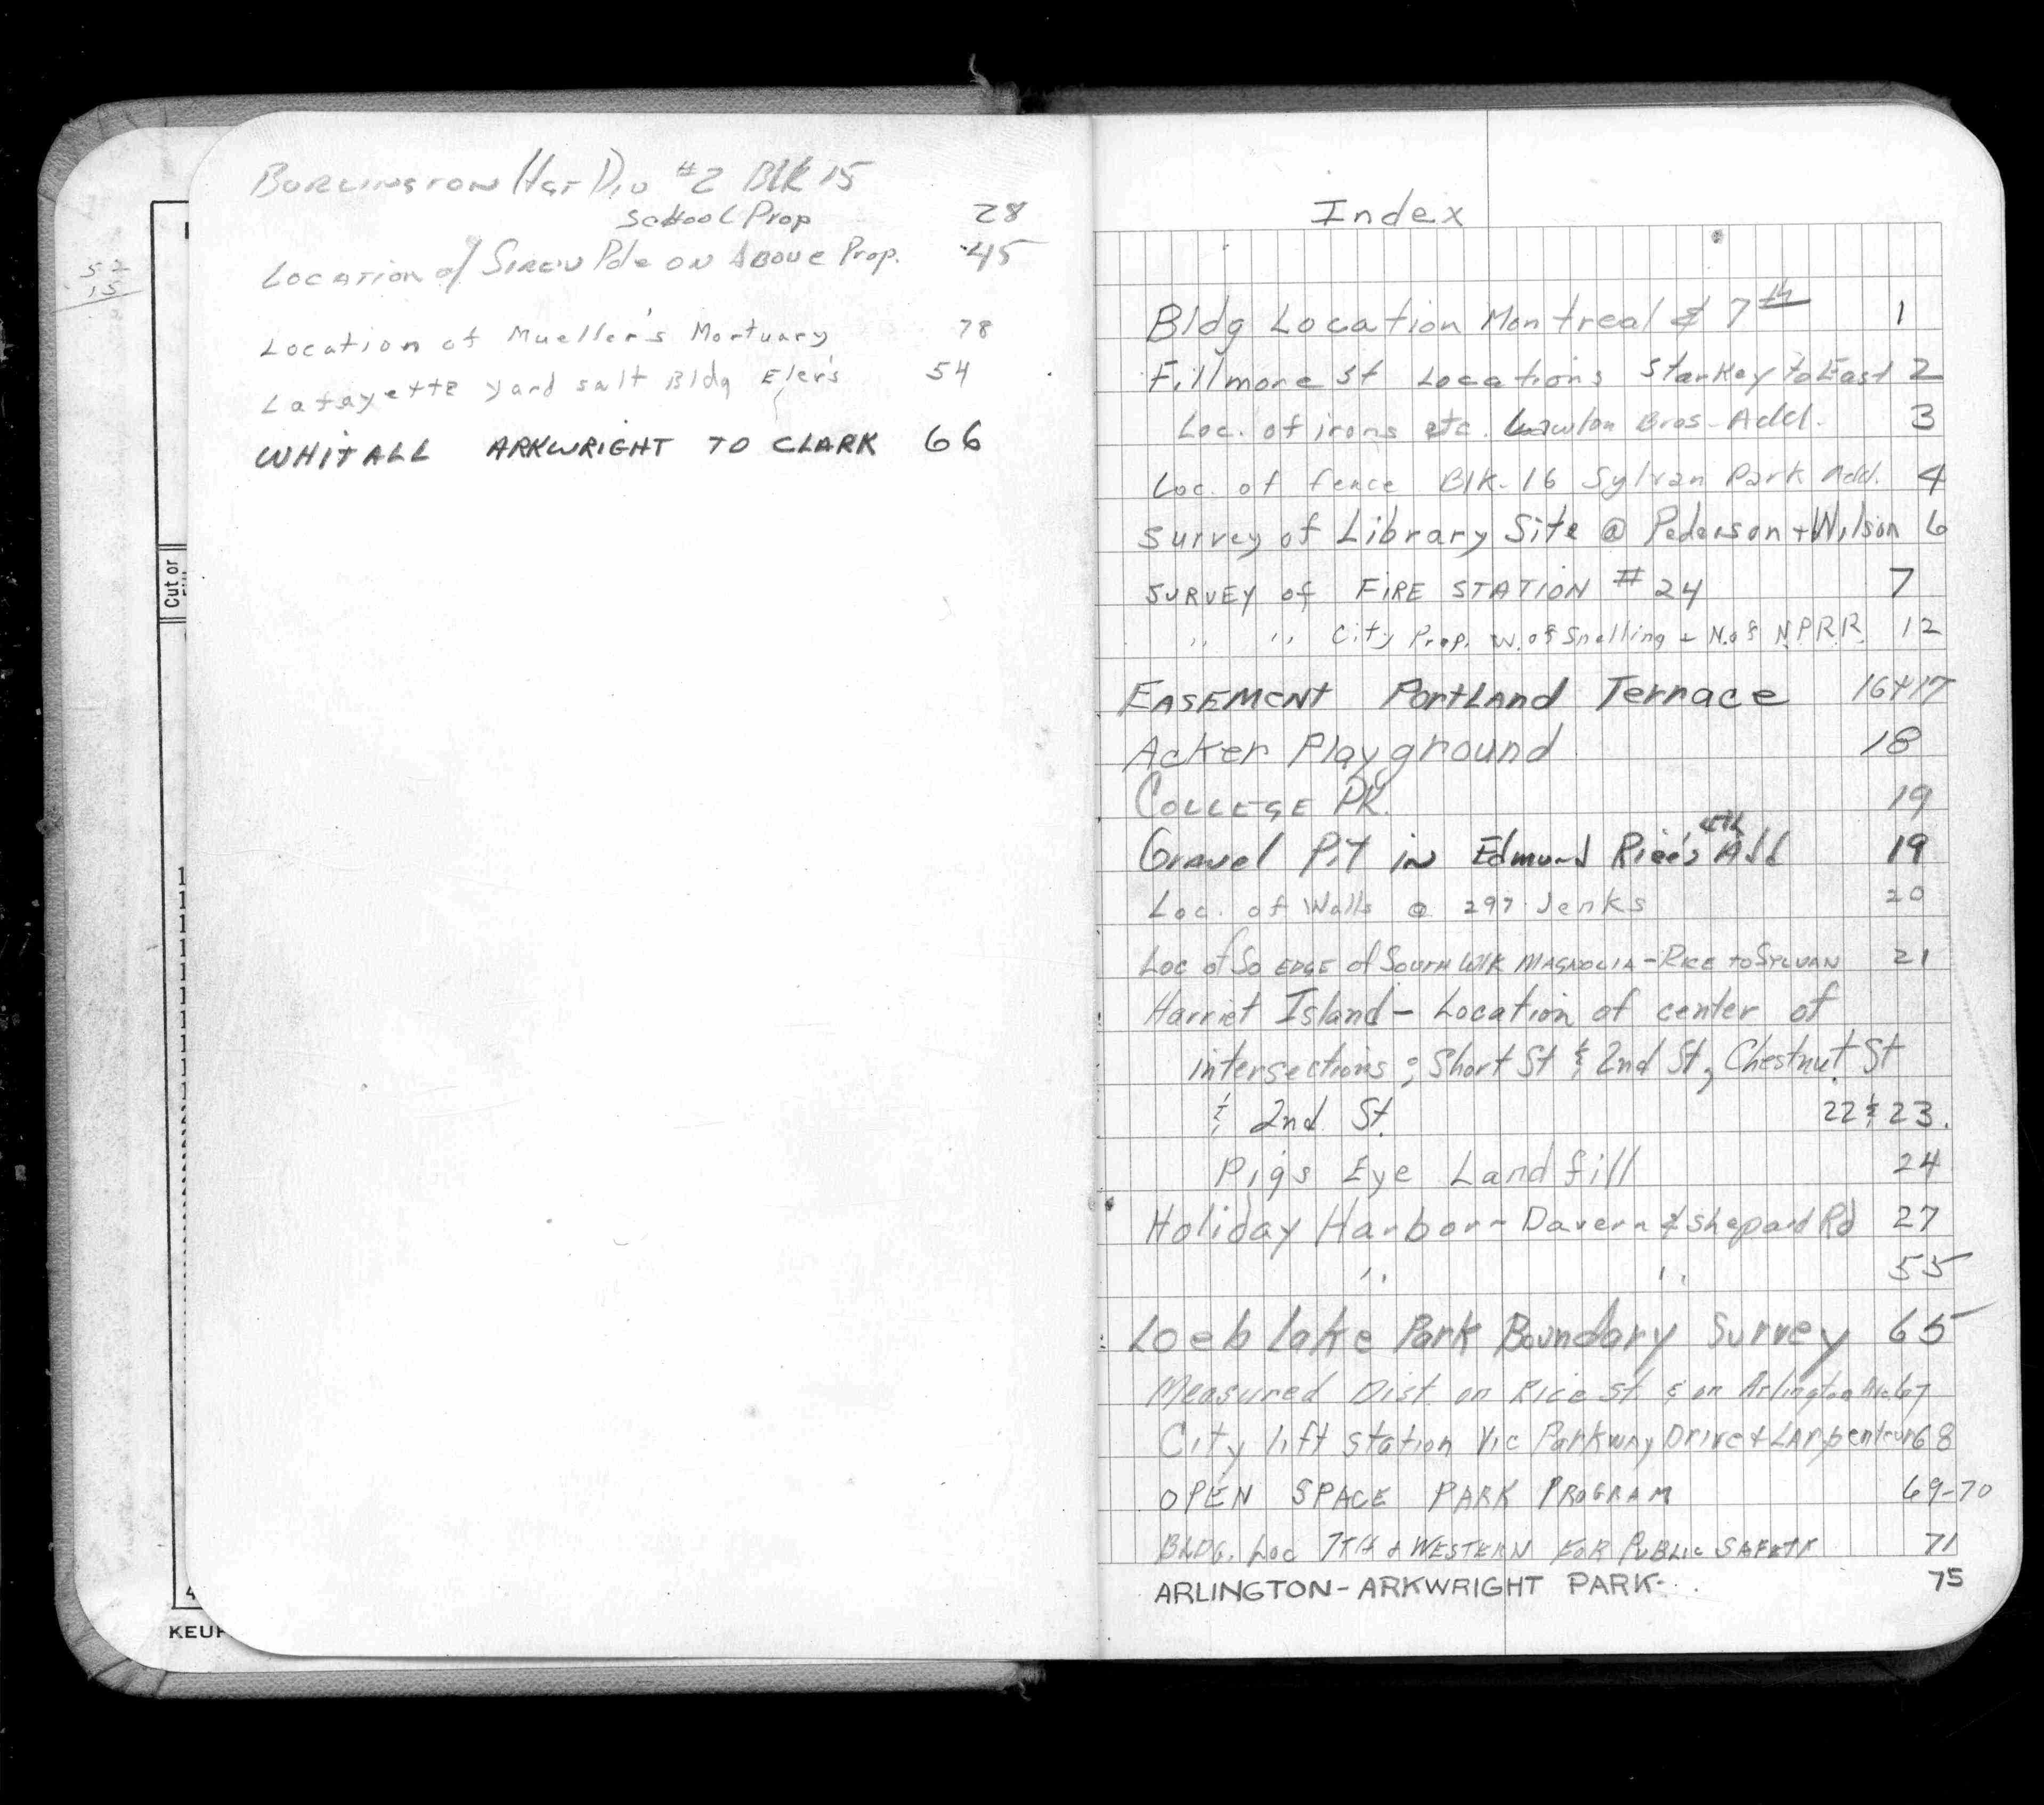 52
15
Cut or
1
1
1
1
1
1
1
1
1
4
KEUF
BURLINGTON Hgt Div #2 Blk 15
School Prop 28
Location of Siren Pole on Above Prop. 45
Location of Mueller's Mortuary 78
Lafayette yard salt Bldg Elev's 54
WHITALL ARKWRIGHT TO CLARK 66
Index
Bldg Location Montreal & 7th 1
Fillmore St Locations Starkey to East 2
Loc. of irons etc. Lawton Bros. Add. 3
Loc. of fence Blk. 16 Sylvan Park Add. 4
Survey of Library Site @ Pederson + Wilson 6
SURVEY of FIRE STATION #24 7
" " City Prop. W. of Snelling + N. of N.P.R.R. 12
EASEMENT Portland Terrace 16+17
Acker Playground 18
COLLEGE PK. 19
Gravel Pit in Edmund Rice's 4th Add 19
Loc. of Walls @ 297 Jenks 20
Loc of So EDGE of SOUTH WLK MAGNOLIA - RICE TO SYLVAN 21
Harriet Island - Location of center of
intersections; Short St & 2nd St, Chestnut St
& 2nd St. 22 & 23.
Pigs Eye Landfill 24
Holiday Harbor - Davern & Shepard Rd 27
" " 55
Loeb lake Park Boundary Survey 65
Measured Dist. on Rice St. & on Arlington Av. 67
City lift station Vic Parkway Drive + Larpenteur 68
OPEN SPACE PARK PROGRAM 69-70
BLDG. Loc 7TH & WESTERN FOR PUBLIC SAFETY 71
ARLINGTON-ARKWRIGHT PARK 75